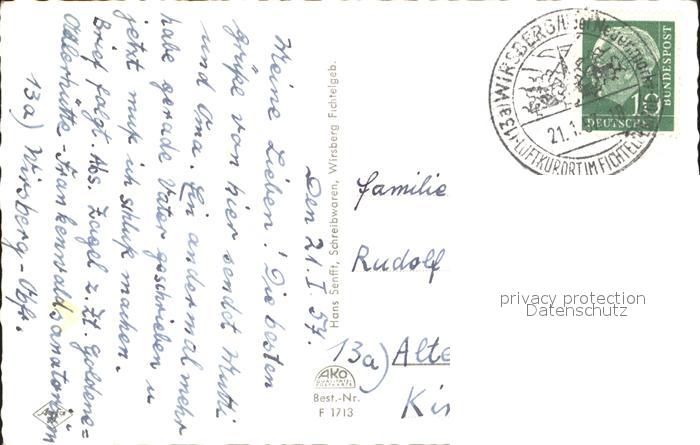 Den 21.I.57.
Meine Lieben! Die besten
grüße von hier sendet Mutti
und Oma. Ein andermal mehr
habe gerade Vater geschrieben u
jetzt muß ich schluß machen.
Brief folgt. Abs. Zagel z. Zt. Goldene=
Adlerhütte - Frankenwaldsanatorium
13a) Wirsberg - Obfr.
Hans Senfft, Schreibwaren, Wirsberg Fichtelgeb.
AKO
Best.-Nr.
F 1713
Agfa
(13a) WIRSBERG
LUFTKURORT IM FICHTEL
21.1.
10
DEUTSCHE
BUNDESPOST
Familie
Rudolf
13a) Alte
Kir
privacy protection
Datenschutz